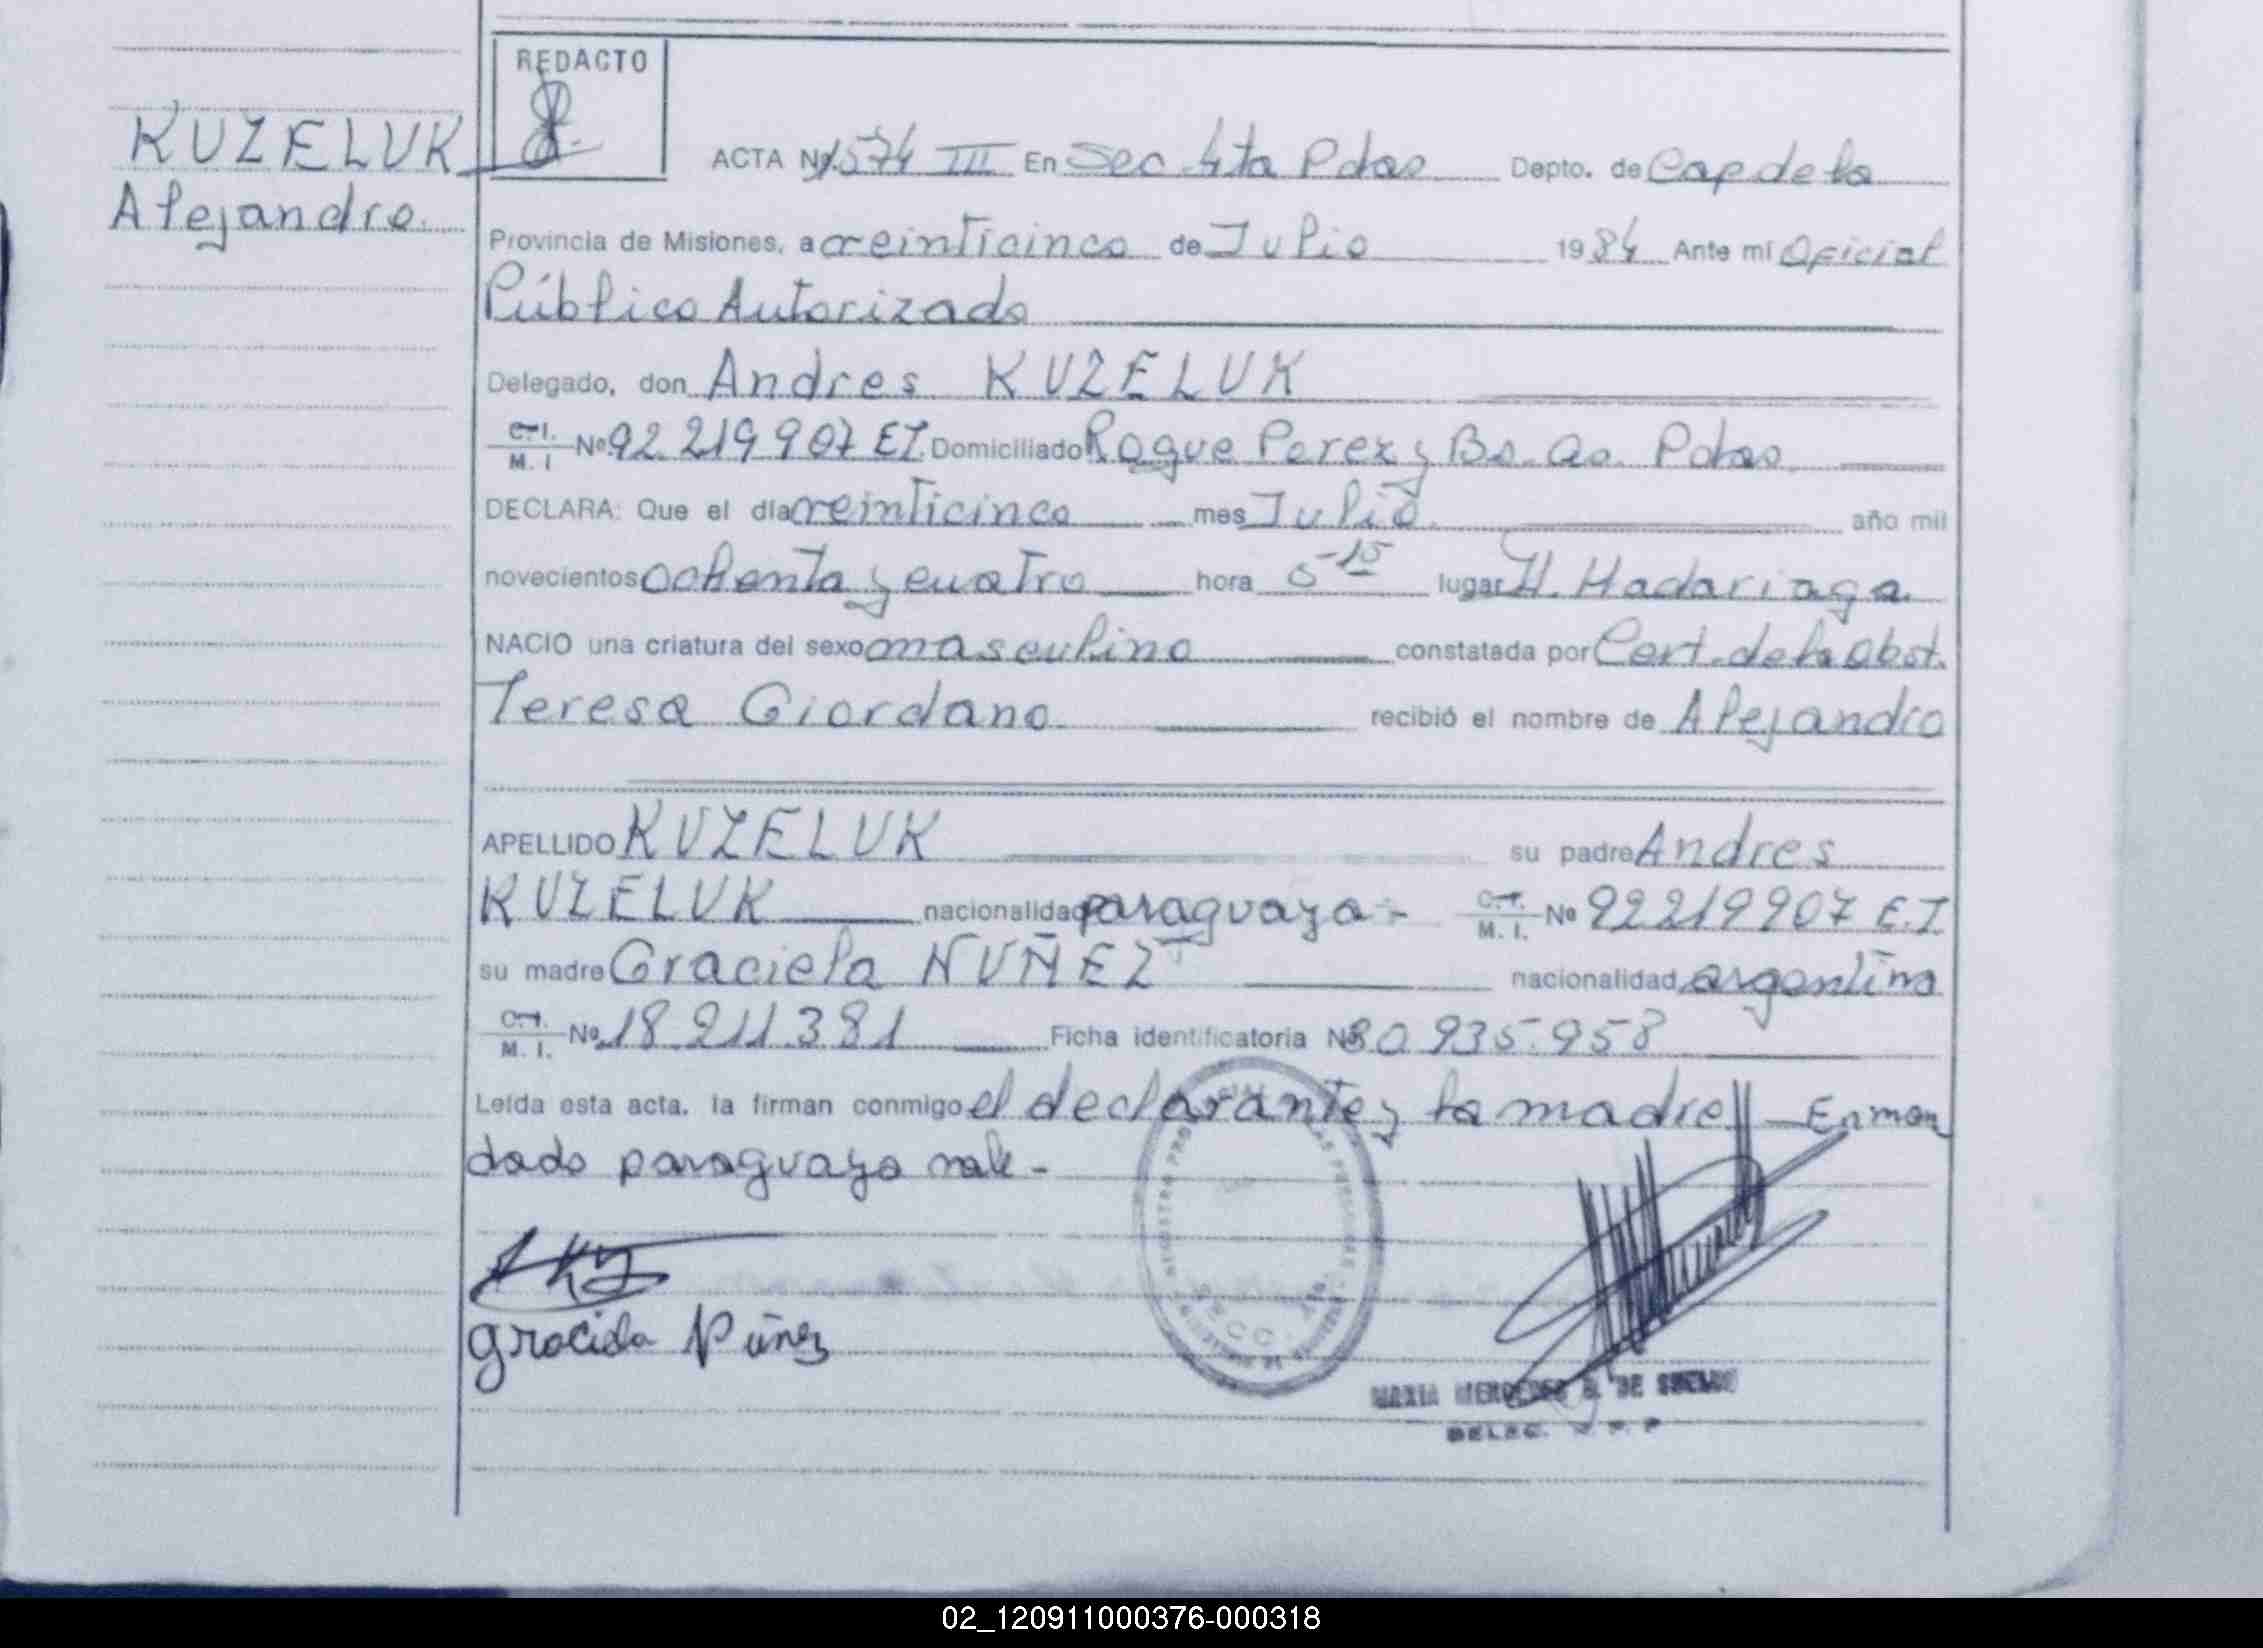 REDACTO
KUZELUK
Alejandro.
ACTA Nº 1.574 III En Sec 4ta Pdas Depto. de Capdela
Provincia de Misiones, a veinticinco de Julio 1984 Ante mí Oficial
Público Autorizado
Delegado, don Andres KUZELUK
C.I. M.I Nº 92.219907 EI. Domiciliado Roque Perez y Bs. As. Pdas.
DECLARA: Que el día veinticinco mes Julio. año mil
novecientos ochenta y cuatro hora 5-15 lugar H. Madariaga.
NACIO una criatura del sexo masculino constatada por Cert. de la Obst.
Teresa Giordano. recibió el nombre de Alejandro
APELLIDO KUZELUK su padre Andres
KUZELUK nacionalidad paraguaya- C.I. M.I. Nº 92219907 E.I
su madre Graciela NUÑEZ nacionalidad argentina
C.I. M.I. Nº 18.211.381 Ficha identificatoria Nº 30.935.958
Leída esta acta, la firman conmigo el declarante y la madre Enmen
dado paraguaya vale-
Graciela Núñez
MARIA MERCEDES DE
DELEG.
02_120911000376-000318